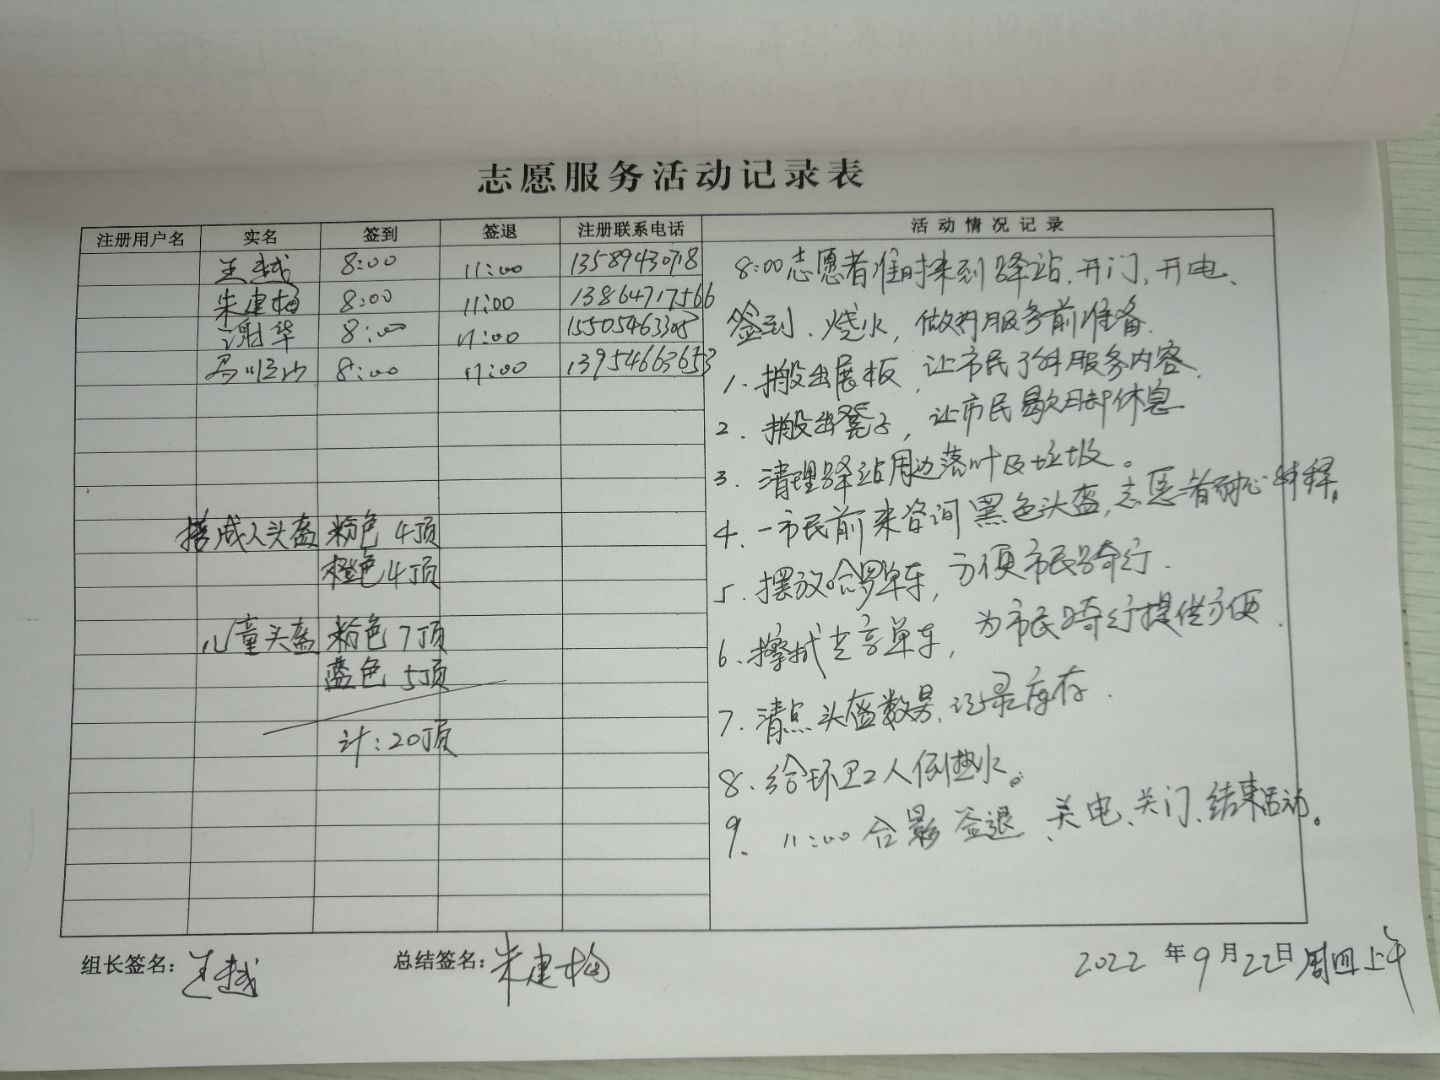 志愿服务活动记录表
注册用户名 实名 签到 签退 注册联系电话 活动情况记录
王越 8:00 11:00 13589430718
朱建梅 8:00 11:00 13864717566
谢华 8:00 11:00 15505463305
8:00 11:00 13954663653
成人头盔 粉色 4顶
橙色 4顶
儿童头盔 粉色 7顶
蓝色 5顶
计:20顶
8:00志愿者准时来到驿站、开门、开电、
签到、烧水,做好服务前准备.
1、搬出展板,让市民了解服务内容.
2、搬出凳子,让市民歇脚休息
3、清理驿站周边落叶及垃圾。
4、一市民前来咨询黑色头盔,志愿者耐心解释。
5、摆放哈罗单车,方便市民骑行.
6、擦拭共享单车,为市民骑行提供方便.
7、清点头盔数量、记录库存.
8、给环卫工人倒热水。
9、11:00合影签退、关电、关门、结束活动。
组长签名:王越 总结签名:朱建梅 2022年9月22日周四上午